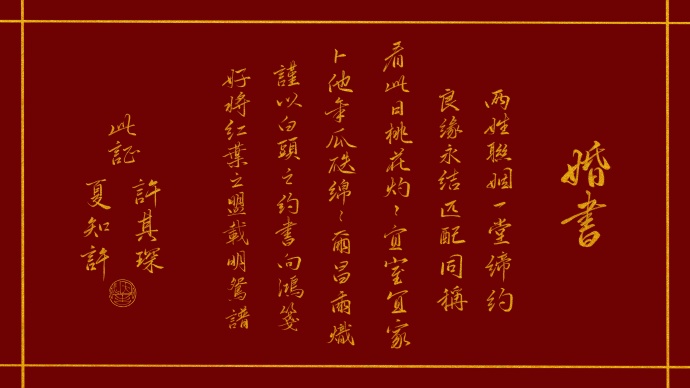 婚書
兩姓聯姻一堂締約
良緣永結匹配同稱
看此日桃花灼〻宜室宜家
卜他年瓜瓞綿〻爾昌爾熾
謹以白頭之約書向鴻箋
好將紅葉之盟載明鴛譜
此証
許其琛
夏知許